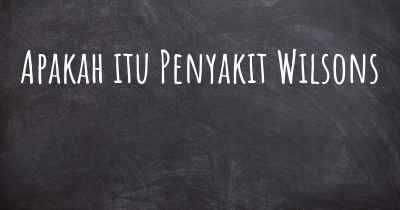 Apakah itu Penyakit Wilsons